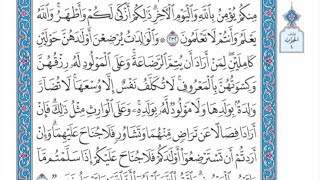 مِنكُمْ يُؤْمِنُ بِاللَّهِ وَالْيَوْمِ الْآخِرِ ذَٰلِكُمْ أَزْكَىٰ لَكُمْ وَأَطْهَرُ وَاللَّهُ
يَعْلَمُ وَأَنتُمْ لَا تَعْلَمُونَ ٢٣٢ وَالْوَالِدَاتُ يُرْضِعْنَ أَوْلَادَهُنَّ حَوْلَيْنِ
كَامِلَيْنِ لِمَنْ أَرَادَ أَن يُتِمَّ الرَّضَاعَةَ وَعَلَى الْمَوْلُودِ لَهُ رِزْقُهُنَّ
وَكِسْوَتُهُنَّ بِالْمَعْرُوفِ لَا تُكَلَّفُ نَفْسٌ إِلَّا وُسْعَهَا لَا تُضَارَّ
وَالِدَةٌ بِوَلَدِهَا وَلَا مَوْلُودٌ لَّهُ بِوَلَدِهِ وَعَلَى الْوَارِثِ مِثْلُ ذَٰلِكَ فَإِنْ
أَرَادَا فِصَالًا عَن تَرَاضٍ مِّنْهُمَا وَتَشَاوُرٍ فَلَا جُنَاحَ عَلَيْهِمَا وَإِنْ
أَرَدتُّمْ أَن تَسْتَرْضِعُوا أَوْلَادَكُمْ فَلَا جُنَاحَ عَلَيْكُمْ إِذَا سَلَّمْتُم مَّا